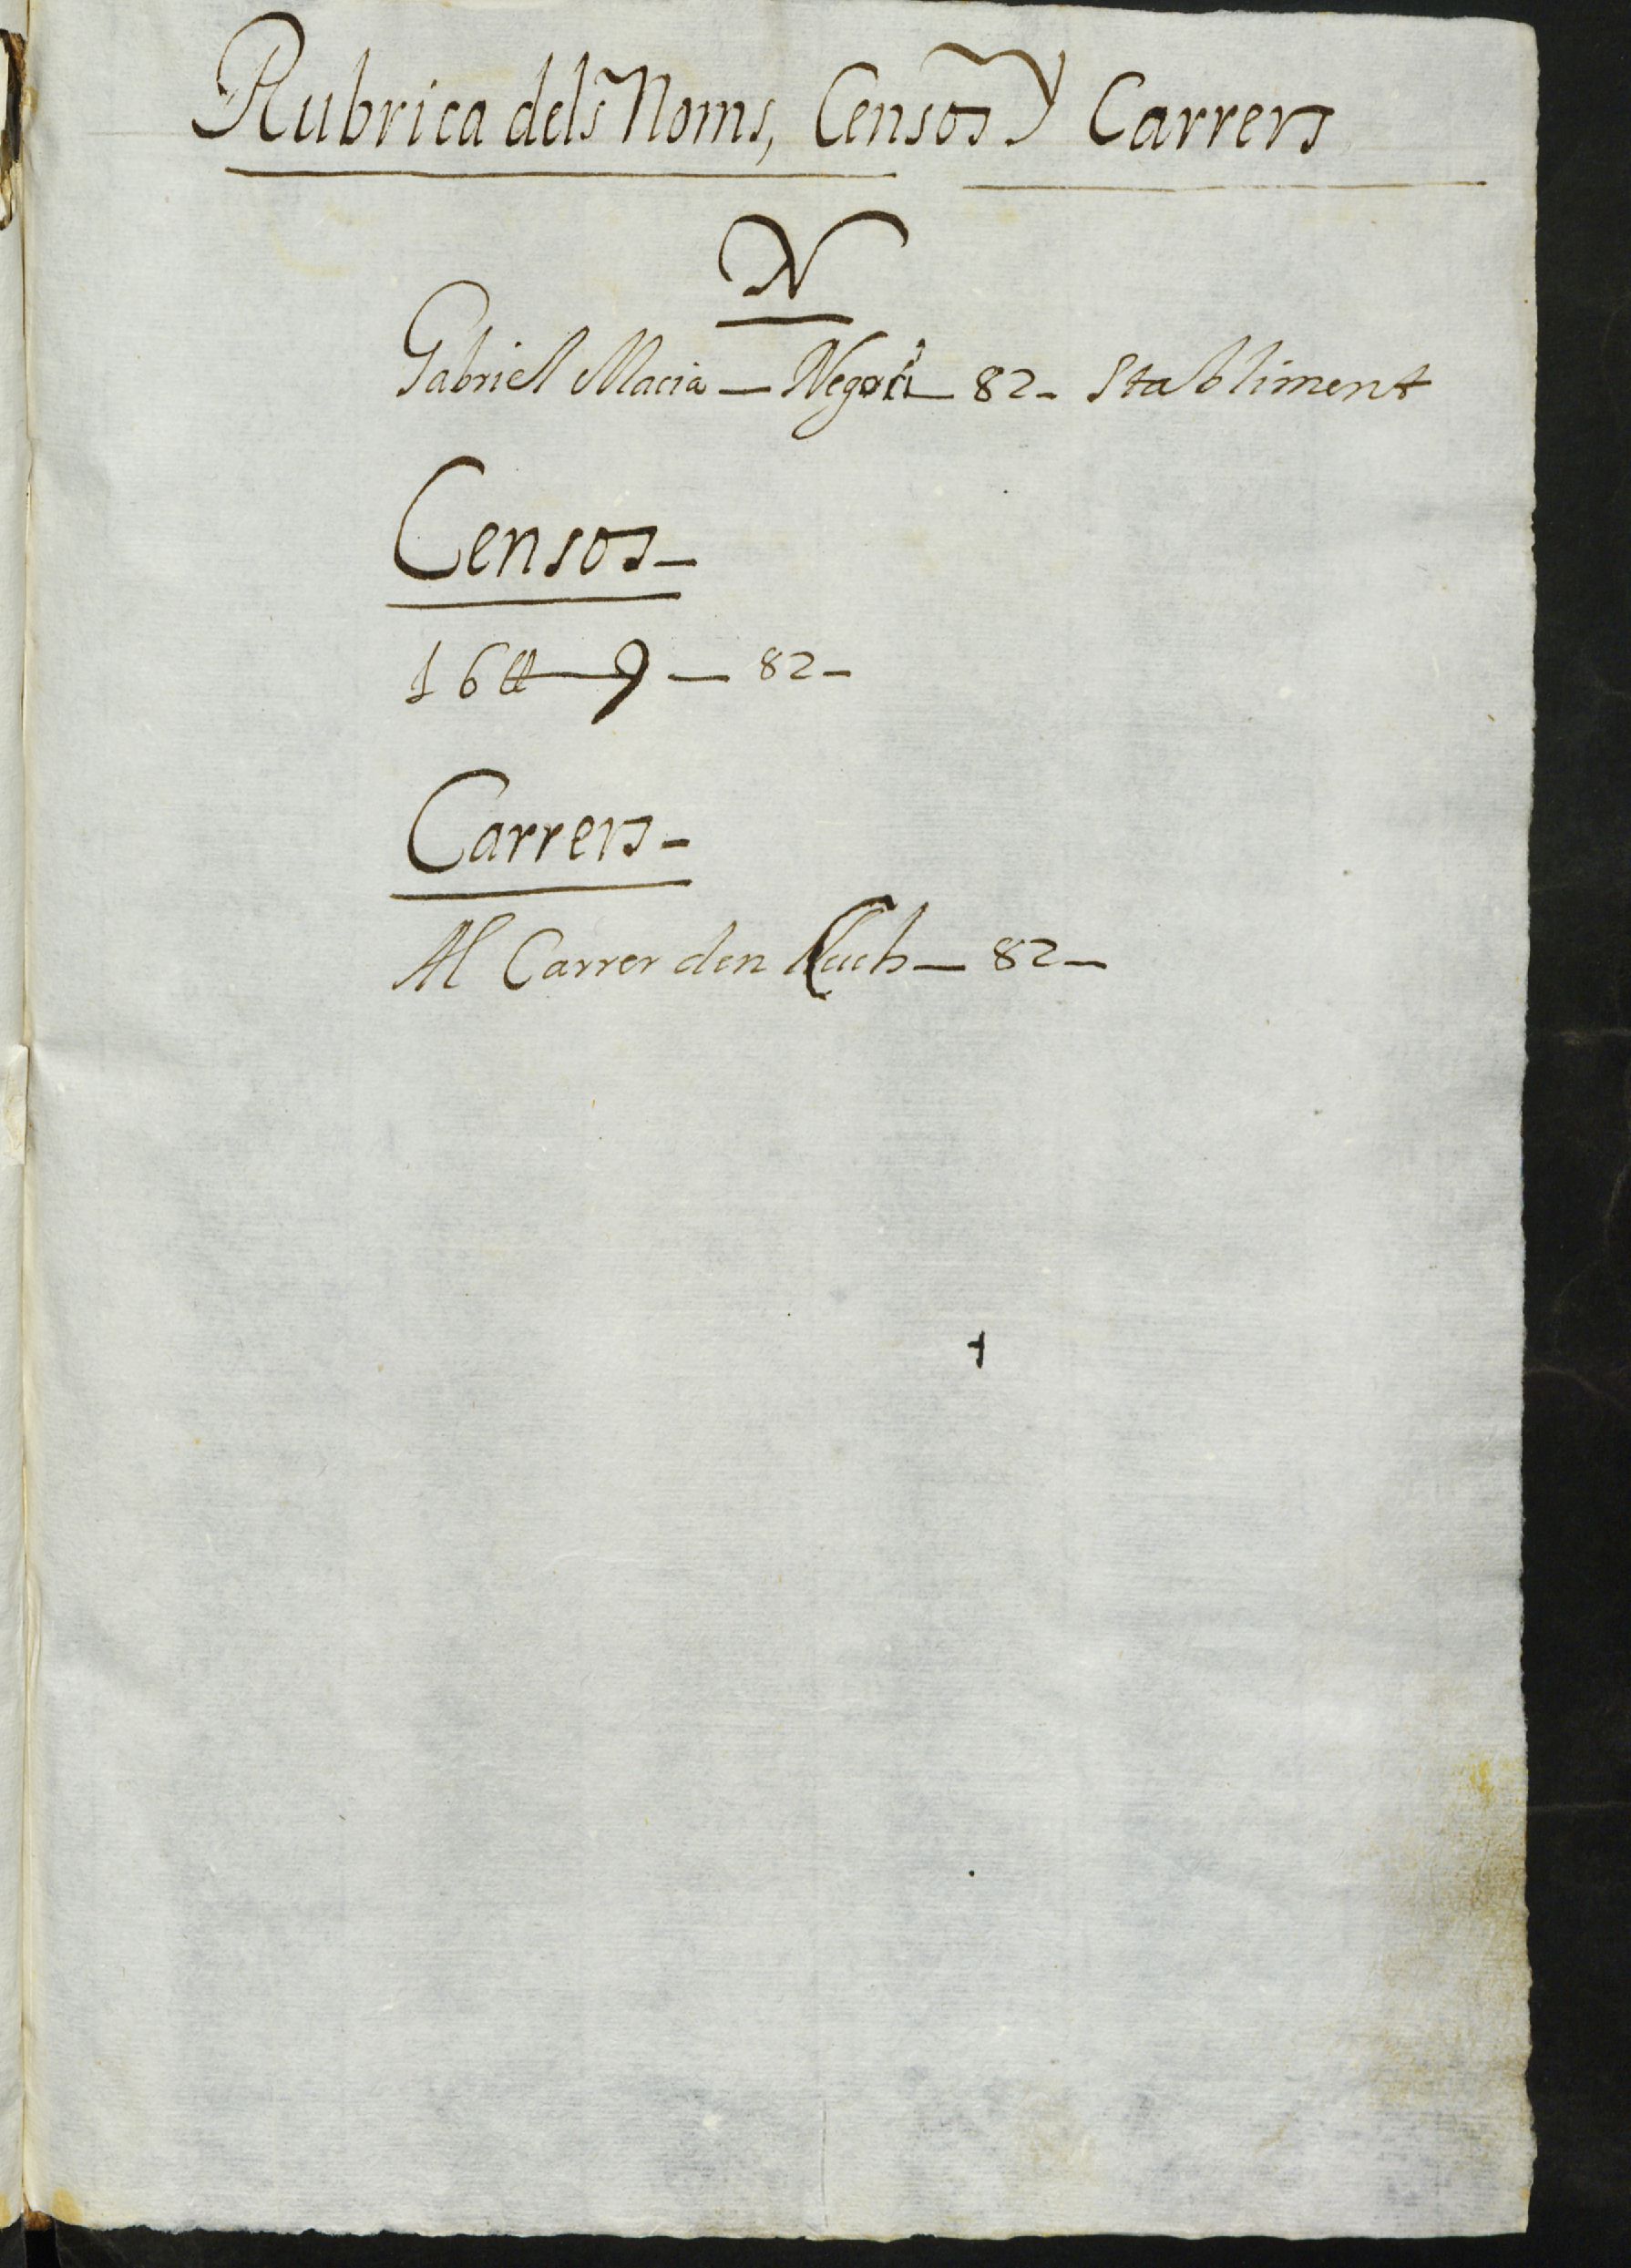 Rubrica dels Noms, Censos y Carrers
N
Gabriel Macia — Negoci — 82 – Stabliment
Censos –
16 ₶ — 9 — 82 –
Carrers –
Al Carrer den Lluch — 82 –